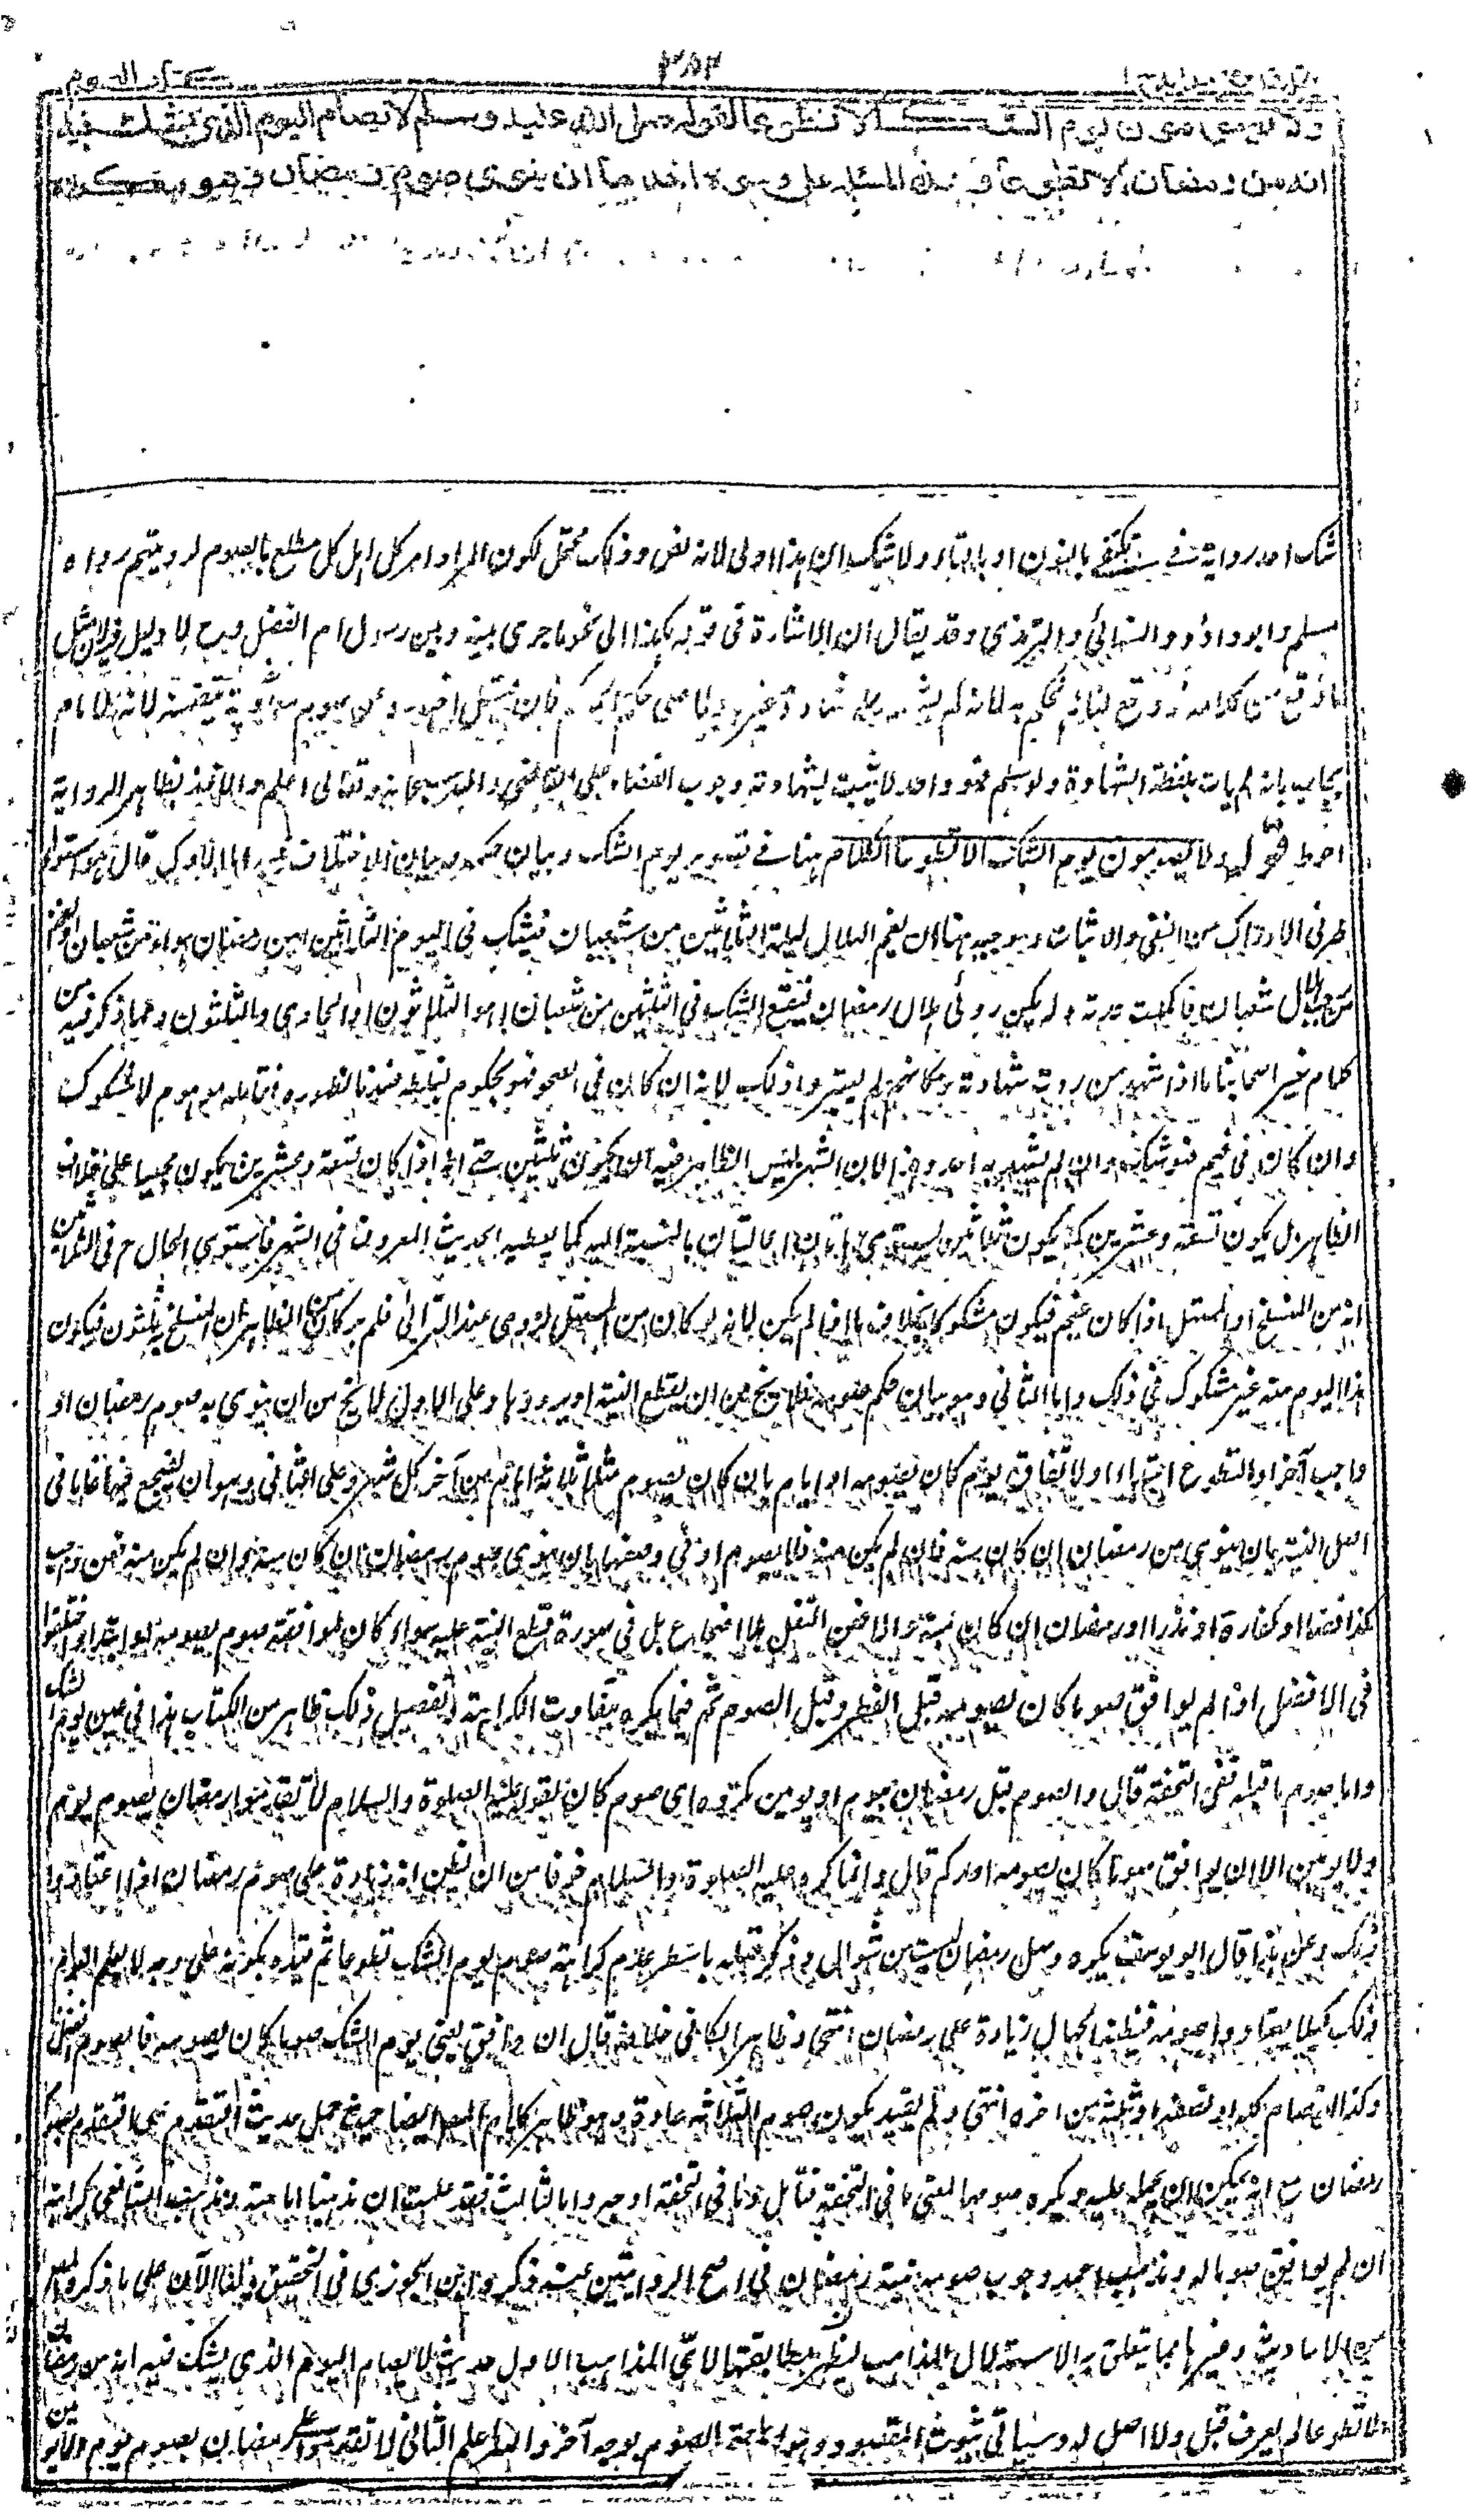 ٣٥٣
كتاب الصوم
ولا يصومون يوم الشك الا تطوعا لقوله صلى الله عليه وسلم لا يصام اليوم الذي يشك فيه
انه من رمضان الا تطوعا و هذه المسئلة على وجوه احدها ان ينوي صوم رمضان وهو مكروه
شك احد رواية في نكتفي بالنون او بالتاء ولا شك ان هذا اولى لانه نص وذلك محتمل لكون المراد امر كل اهل كل مطلع بالصوم لرويتهم رواه
مسلم وابو داؤد والنسائي والترمذي وقد يقال ان الاشارة في قوله هكذا الى نحو ما جرى بينه وبين رسول ام الفضل وح لا دليل فيه لان مثل
ما وقع من كلامه لو وقع لنا لم نحكم به لانه لم يشهد على شهادة غيره ولا على حكم الحاكم فان قيل اخباره عن صوم معاوية يتضمنه لانه الامام
يجاب بانه لم يات بلفظة الشهادة ولو سلم فهو واحد لا يثبت بشهادته وجوب القضاء على القاضي والله سبحانه وتعالى اعلم والاخذ بظاهر الرواية
احوط قوله ولا يصومون يوم الشك الا تطوعا الكلام هنا في تصوير يوم الشك وبيان حكمه وبيان الاختلاف فيه اما الاول قال هو استواء
طرفي الادراك من النفي والاثبات وموجبه هنا ان يغم الهلال ليلة الثلاثين من شعبان فيشك في اليوم الثلاثين امن رمضان هو او من شعبان او يغم
من رجب هلال شعبان فاكملت عدته ولم يكن روئي هلال رمضان فيقع الشك في الثلثين من شعبان اهو الثلاثون او الحادي والثلثون ومما ذكر فيه من
كلام غير اصحابنا ما اذا شهد من ردت شهادته وكانهم لم يعتبروا ذلك لانه ان كان في الصحو فهو محكوم بغلطه عندنا لظهوره فمقابله موهوم لا مشكوك
وان كان في غيم فهو شك وان لم يشهد به احد وهذا لان الشهر ليس الظاهر فيه ان يكون ثلثين حتى انه اذا كان تسعة وعشرين يكون مجيئا على خلاف
الظاهر بل يكون تسعة وعشرين كما يكون ثلاثين تستوي هاتان الحالتان بالنسبة اليه كما يعطيه الحديث المعروف في الشهر فاستوى الحال ح في الثلاثين
انه من المنسلخ او المستهل اذا كان غيم فيكون مشكوكا بخلاف ما اذا لم يكن لانه لو كان من المستهل لروي عند الترائي فلم ير كان الظاهر ان المنسلخ ثلثون فيكون
هذا اليوم منه غير مشكوك في ذلك واما الثاني وهو بيان حكم صومه فلا يخ من ان يقطع النية او يرددها وعلى الاول لا يخ من ان ينوي به صوم رمضان او
واجب آخر او التطوع ابتداء او لاتفاق يوم كان يصومه او ايام بان كان يصوم مثلا ثلاثة ايام من آخر كل شهر وعلى الثاني وهو ان يضجع فيها فاما في
اصل النية بان ينوي من رمضان ان كان منه فان لم يكن منه فلا يصوم او في وصفها بان ينوي صوم رمضان ان كان منه وان لم يكن منه فعن واجب
كذا قضاء او كفارة او نذرا او رمضان ان كان منه والا فعن النفل
في الافضل اذا لم يوافق صوما كان يصومه قبل الفطر وقيل الصوم ثم فيما يكره يتفاوت الكراهة وتفصيل ذلك ظاهر من الكتاب هذا في عين يوم الشك
واما صوم ما قبله ففي التحفة قال والصوم قبل رمضان بيوم او يومين مكروه اي صوم كان لقوله عليه الصلوة والسلام لا تتقدموا رمضان بصوم يوم
ولا يومين الا ان يوافق صوما كان يصومه احدكم قال وانما كره عليه الصلوة والسلام خوفا من ان يظن انه زيادة على صوم رمضان اذا اعتادوا
ذلك وعن هذا قال ابو يوسف يكره وصل رمضان بست من شوال وذكر قبله باسطر عدم كراهة صوم يوم الشك تطوعا ثم قيده بكونه على وجه لا يعلم العوام
ذلك كيلا يعتادوا صومه فيظنه الجهال زيادة على رمضان انتهى وظاهر الكافي خلافه قال ان وافق يعني يوم الشك صوما كان يصومه فالصوم افضل
وكذا اذا صام كله او نصفه او ثلثة من اخره انتهى ولم يقيد بكون صوم الثلاثة عادة وهو ظاهر كلام المص ايضا حيث حمل حديث التقدم على التقدم بصوم
رمضان مع انه يمكن ان يحمله عليه ويكره صومها لمعنى ما في التحفة فتامل وما في التحفة اوجه واما الثالث فقد علمت ان مذهبنا اباحته ومذهب الشافعي كراهته
ان لم يوافق صوما له ومذهب احمد وجوب صومه بنية رمضان في اصح الروايتين عنه ذكره ابن الجوزي في التحقيق ولنات الآن على ما ذكره المص
من الاحاديث وغيرها مما يتعلق به الاستدلال للمذاهب ليظهر مطابقتها لاي المذاهب الاول حديث لا يصام اليوم الذي يشك فيه انه من رمضان
الا تطوعا لم يعرف قيل ولا اصل له وسياتي ثبوت المقصود وهو اباحة الصوم بوجه آخر والله اعلم الثاني لا تقدموا على رمضان بصوم يوم ولا يومين